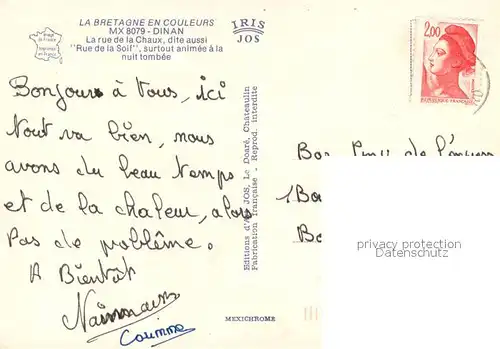 LA BRETAGNE EN COULEURS
MX 8079 - DINAN
La rue de la Chaux, dite aussi
"Rue de la Soif", surtout animée à la
nuit tombée
IRIS
JOS
2,00
REPUBLIQUE FRANÇAISE
Bonjour à Vous, ici
tout va bien, nous
avons du beau temps
et de la chaleur, alors
pas de problème.
A Bientôt
Editions d'Art JOS, Le Doaré, Châteaulin
Fabrication française - Reprod. interdite
de
MEXICHROME
privacy protection
Datenschutz